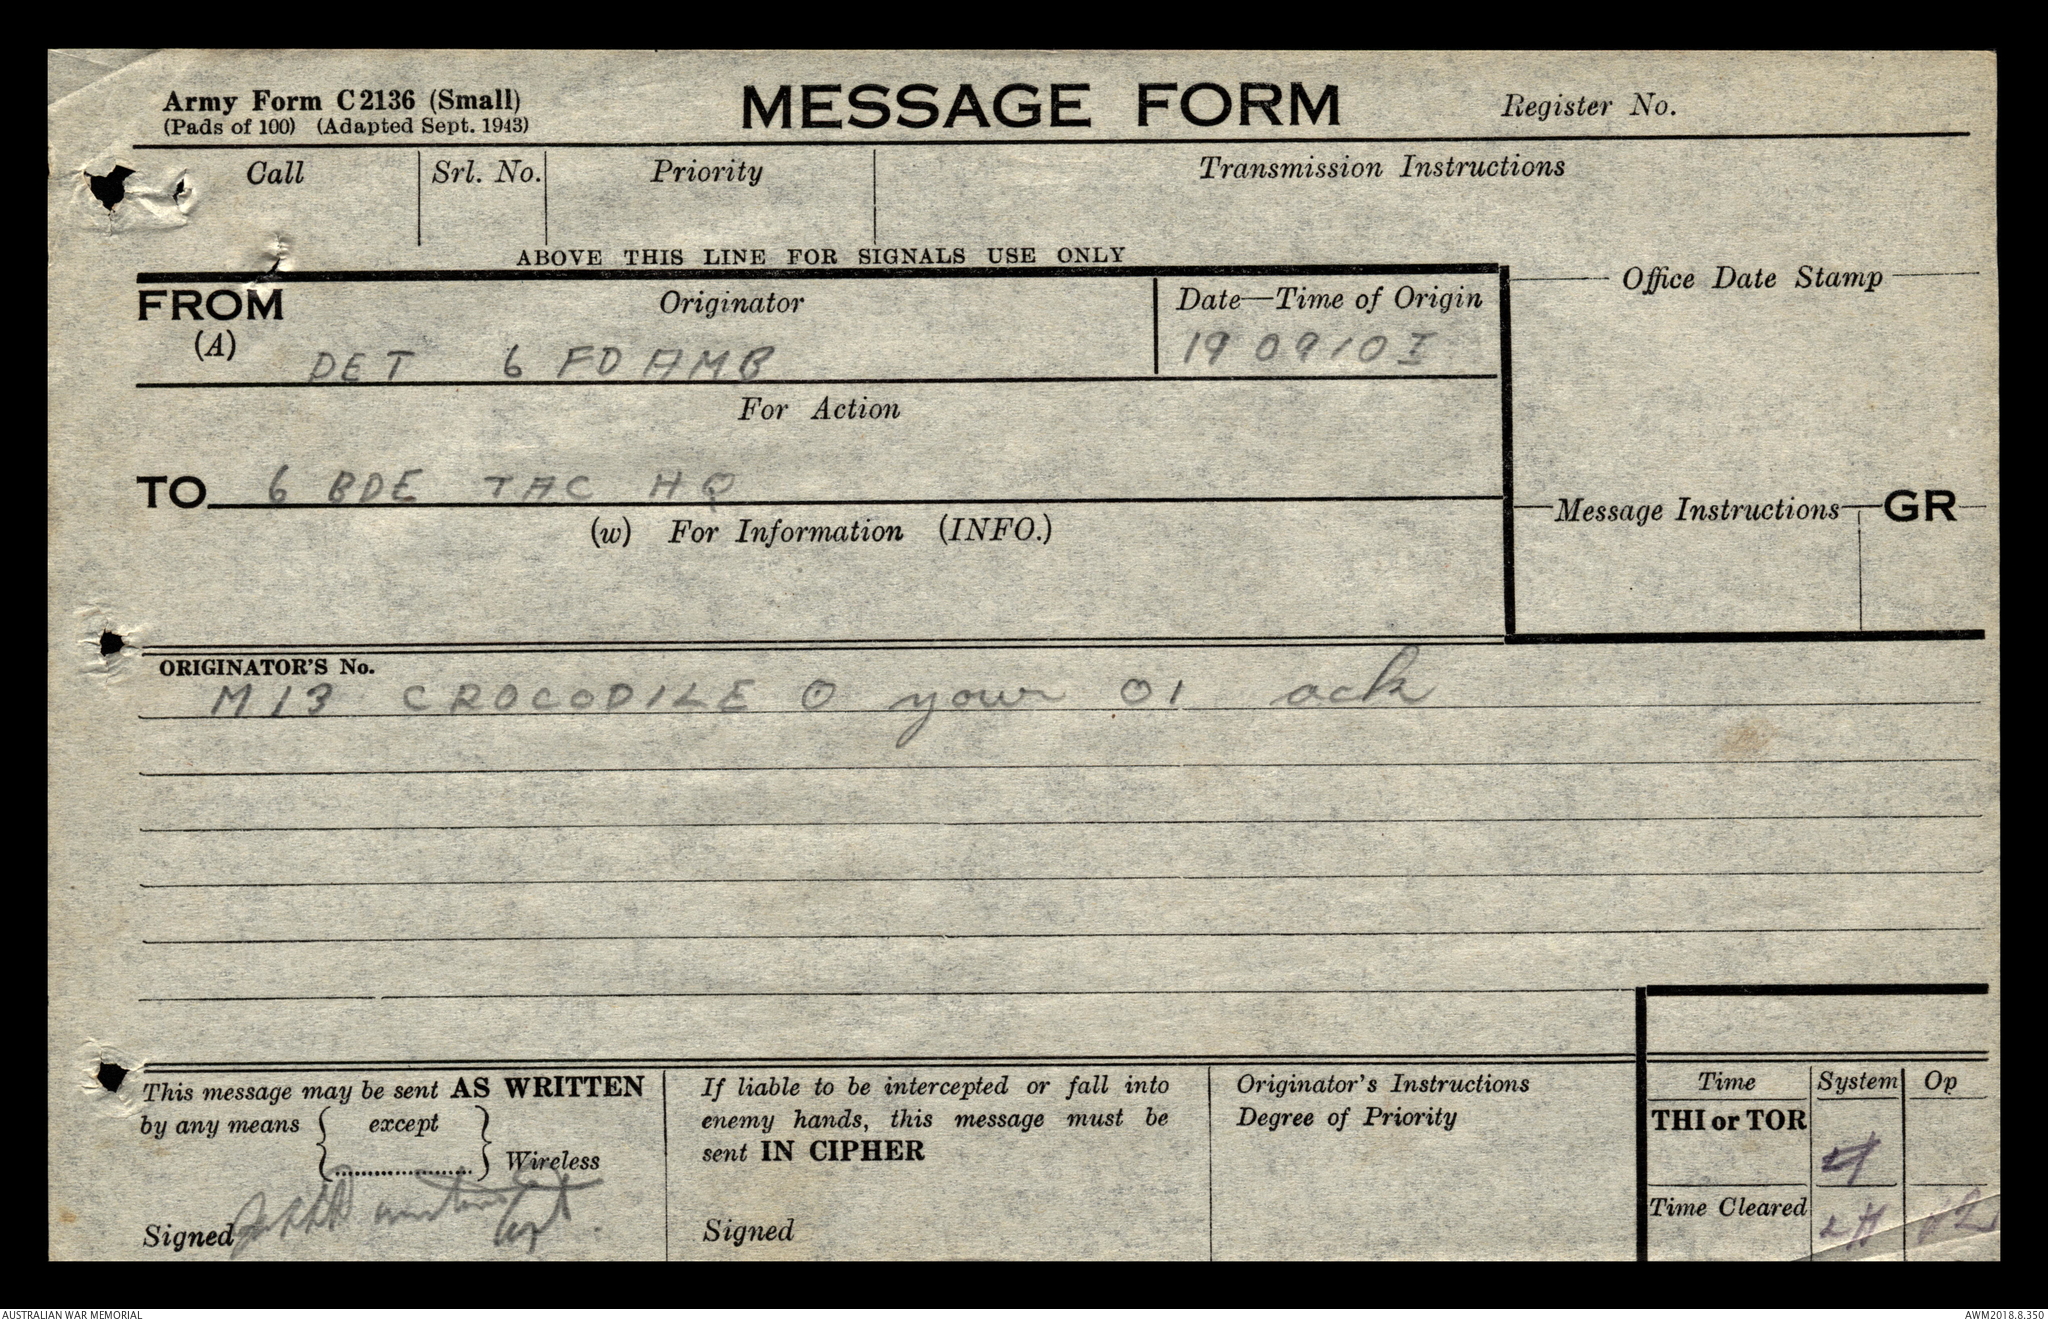 Army Form C2136 (Small)
(Pads of 100) (Adapted Sept. 1943)
MESSAGE FORM
Register No.
Call
Srl. No.
Priority
Transmission Instructions
ABOVE THIS LINE FOR SIGNALS USE ONLY
FROM
(A)
Originator
DET 6 FD AMB
Date—Time of Origin
190910 I
Office Date Stamp
For Action
TO 6 BDE TAC HQ
(w) For Information (INFO.)
Message Instructions
GR
ORIGINATOR'S No.
M13 CROCODILE O your 01 ack
This message may be sent AS WRITTEN
by any means { except
..................... } Wireless
Signed Capt.
If liable to be intercepted or fall into
enemy hands, this message must be
sent IN CIPHER
Signed
Originator's Instructions
Degree of Priority
Time
System
Op
THI or TOR
Time Cleared
LH
AUSTRALIAN WAR MEMORIAL
AWM2018.8.350